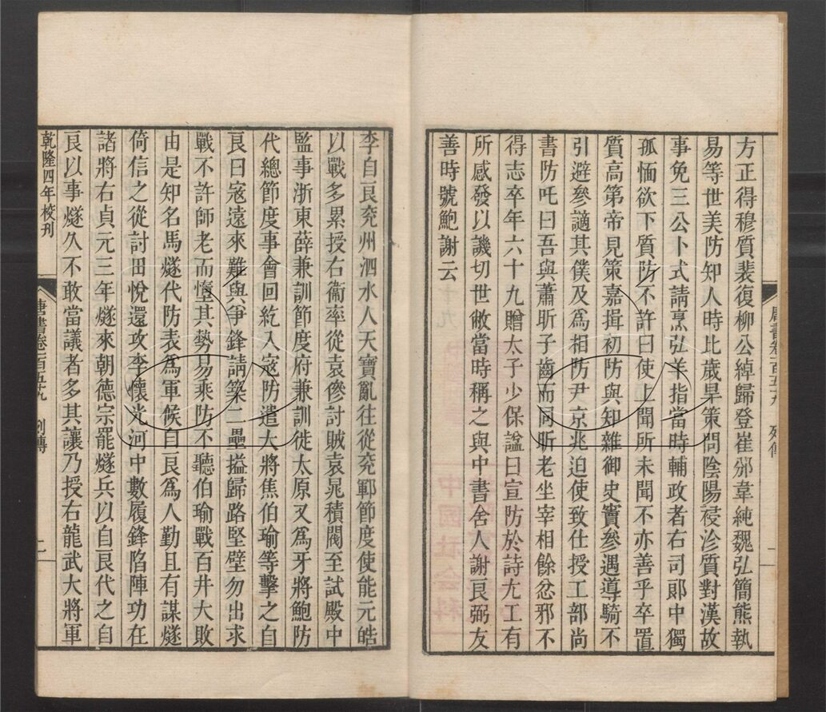 方正得穆質裴復柳公綽歸登崔邠韋純魏弘簡熊執
易等世美防知人時比歲旱策問陰陽祲沴質對漢故
事免三公卜式請烹弘羊指當時輔政者右司郞中獨
孤愐欲下質防不許曰使上聞所未聞不亦善乎卒置
質高第帝見策嘉揖初防與知雜御史竇參遇導騎不
引避參謫其僕及爲相防尹京兆迫使致仕授工部尚
書防吒曰吾與蕭昕子齒而同昕老坐宰相餘忿邪不
得志卒年六十九贈太子少保諡曰宣防於詩尤工有
所感發以譏切世敝當時稱之與中書舍人謝良弼友
善時號鮑謝云
李自良兖州泗水人天寶亂往從兖鄆節度使能元皓
以戰多累授右衞率從袁傪討賊袁晁積閥至試殿中
監事浙東薛兼訓節度府兼訓徙太原又爲牙將鮑防
代總節度事會回紇入寇防遣大將焦伯瑜等擊之自
良曰寇遠來難與爭鋒請築二壘搤歸路堅壁勿出求
戰不許師老而墮其勢易乘防不聽伯瑜戰百井大敗
由是知名馬燧代防表爲軍候自良爲人勤且有謀燧
倚信之從討田悅還攻李懷光河中數履鋒陷陣功在
諸將右貞元三年燧來朝德宗罷燧兵以自良代之自
良以事燧久不敢當議者多其讓乃授右龍武大將軍
乾隆四年校刊
唐書卷一百五十九 列傳 二